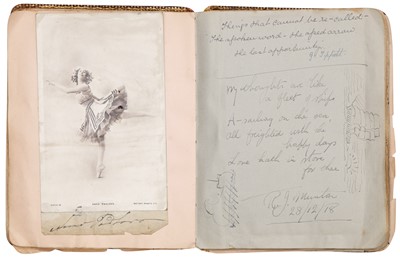 Anna Pavlova
Things that cannot be re-called -
The spoken word - the sped arrow
the lost opportunity.
My thoughts are like
a fleet of ships
A-sailing on the sea
all freighted with the
happy days
Love hath in store
for thee
28/12/18